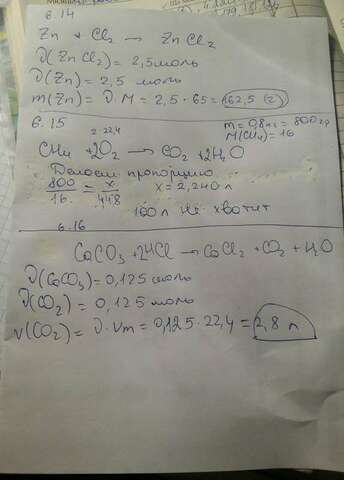 6.14
Zn + Cl₂ → ZnCl₂
ν(ZnCl₂) = 2,5моль
ν(Zn) = 2,5 моль
m(Zn) = ν·M = 2,5·65 = 162,5 (г)
6.15
m = 0,8кг = 800гр
M(CH₄) = 16
2·22,4
CH₄ + 2O₂ → CO₂ + 2H₂O
Делаем пропорцию
800/16 = x/44,8 x = 2,240л
100л не хватит
6.16
CaCO₃ + 2HCl → CaCl₂ + CO₂ + H₂O
ν(CaCO₃) = 0,125 моль
ν(CO₂) = 0,125 моль
v(CO₂) = ν·Vm = 0,125·22,4 = 2,8 л